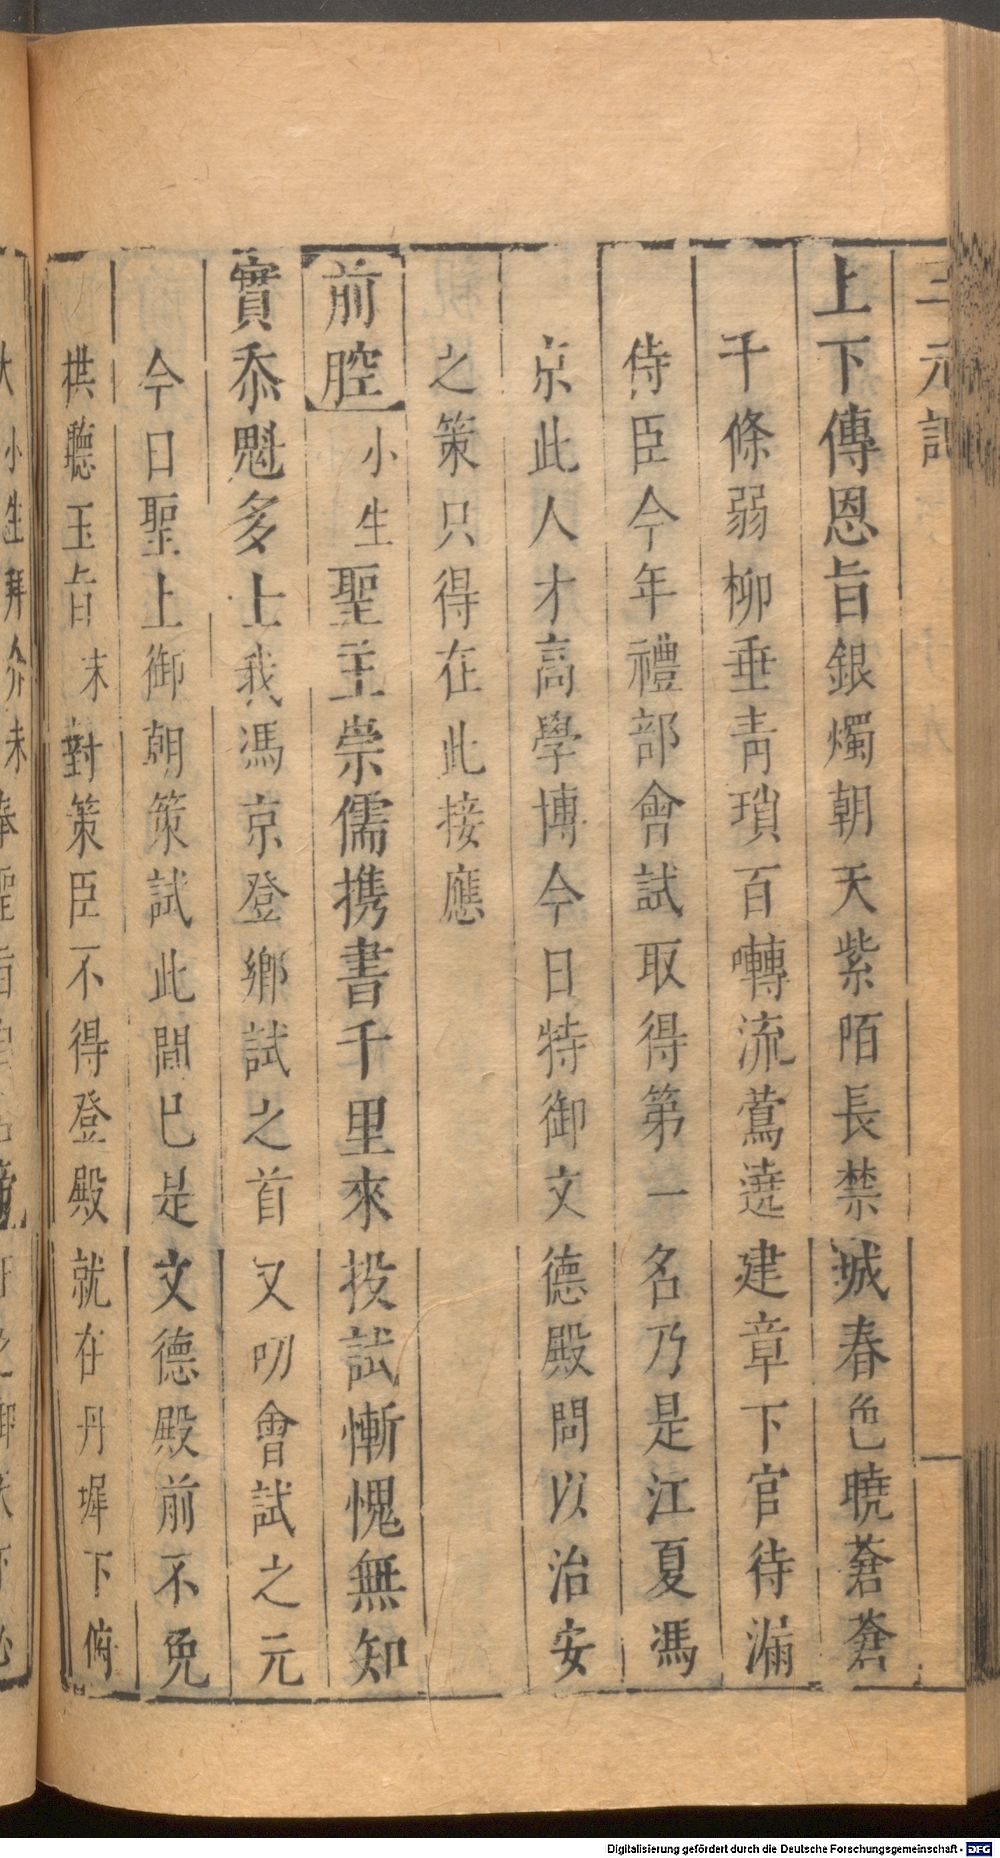 三元記
上下傳恩旨銀燭朝天紫陌長禁城春色曉蒼蒼
千條弱柳垂青瑣百囀流鶯遶建章下官待漏
侍臣今年禮部會試取得第一名乃是江夏馮
京此人才高學博今日特御文德殿問以治安
之策只得在此接應
前腔小生聖主崇儒携書千里來投試慚愧無知
實忝魁多士我馮京登鄉試之首又叨會試之元
今日聖上御朝策試此間已是文德殿前不免
拱聽玉旨末對策臣不得登殿就在丹墀下俯
Digitalisierung gefördert durch die Deutsche Forschungsgemeinschaft - DFG